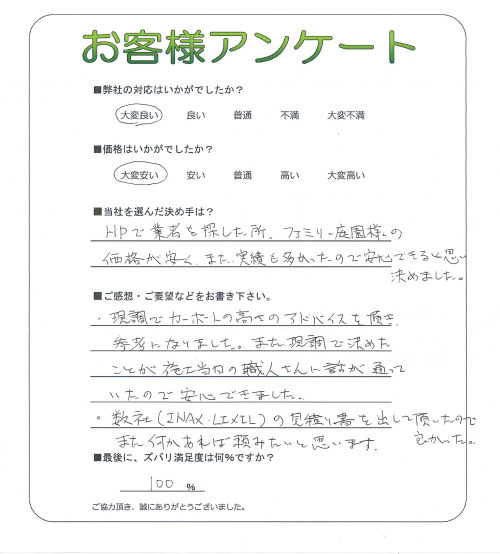 お客様アンケート
■弊社の対応はいかがでしたか？
大変良い 良い 普通 不満 大変不満
■価格はいかがでしたか？
大変安い 安い 普通 高い 大変高い
■当社を選んだ決め手は？
HPで業者を探した所、ファミリー庭園様の
価格が安く、また、実績も多かったので安心できると思い
決めました。
■ご感想・ご要望などをお書き下さい。
・現調でカーポートの高さのアドバイスを頂き、
参考になりました。また現調で決めた
ことが施工当日の職人さんに話が通って
いたので安心できました。
・数社(INAX・LIXIL)の見積り書を出して頂いたので
良かった。
また何かあれば頼みたいと思います。
■最後に、ズバリ満足度は何%ですか？
100 %
ご協力頂き、誠にありがとうございました。